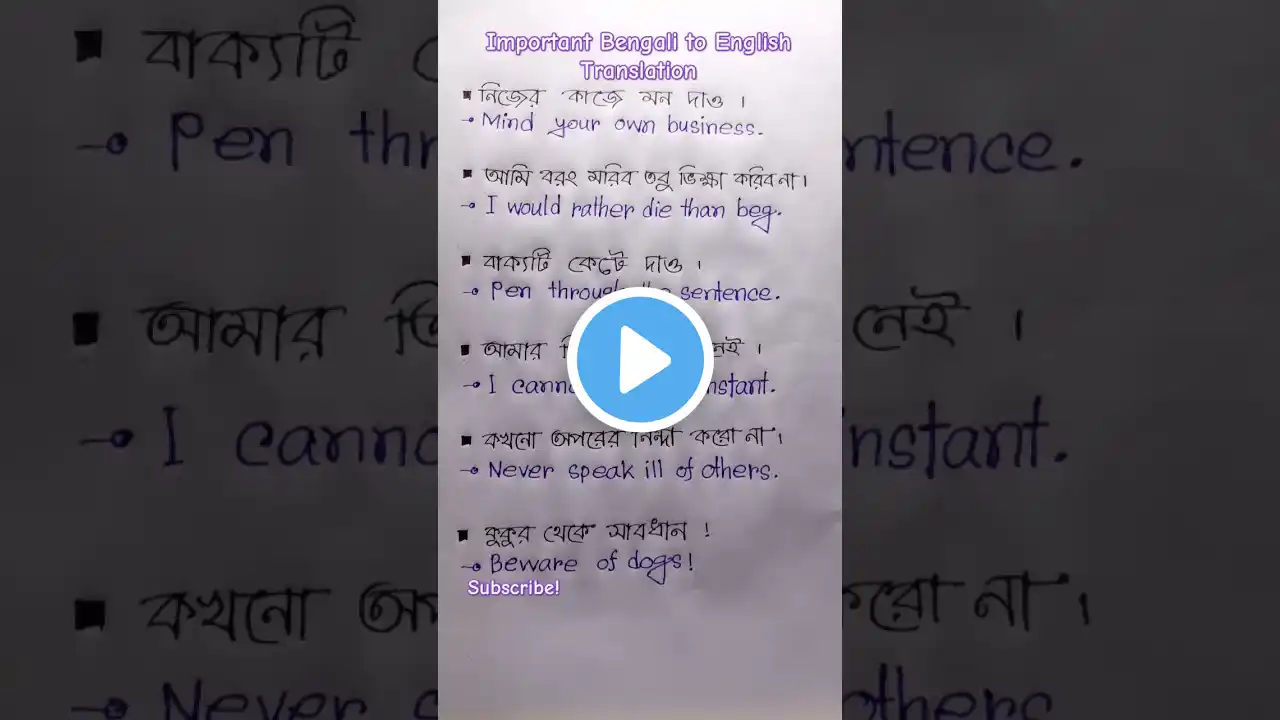 Important Bengali to English
Translation
▪ নিজের কাজে মন দাও ।
→ Mind your own business.
▪ আমি বরং মরিব তবু ভিক্ষা করিব না ।
→ I would rather die than beg.
▪ বাক্যটি কেটে দাও ।
→ Pen through the sentence.
▪ আমার নেই ।
→ I
▪ কখনো অপরের নিন্দা করো না ।
→ Never speak ill of others.
▪ কুকুর থেকে সাবধান !
→ Beware of dogs!
Subscribe!